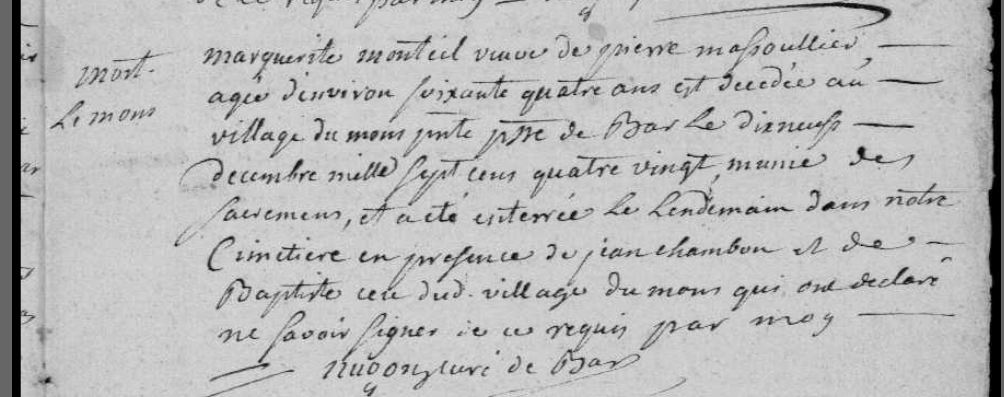 mort.
Le mons
marguerite monteil veuve de pierre massoullier
agée d'environ soixante quatre ans est decedée au
village du mons pnte psse de Bar Le dixneuf
decembre mille sept cens quatre vingt, munie des
sacremens, et a eté enterrée Le Lendemain dans notre
Cimetiere en presence de jean chambon et de
Baptiste ceu dud. village du mons qui ont declaré
ne savoir signer de ce requis par moy
curé de Bar